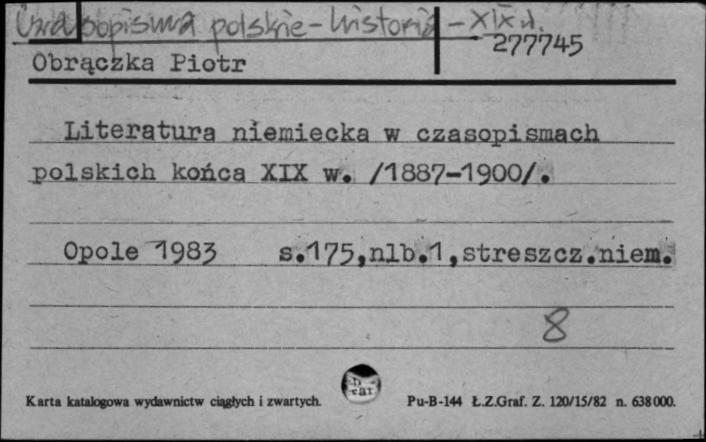 Czasopisma polskie - historia - XIX w.
277745
Obrączka Piotr
Literatura niemiecka w czasopismach
polskich końca XIX w. /1887-1900/.
Opole 1983 s.175,nlb.1,streszcz.niem.
8
Karta katalogowa wydawnictw ciągłych i zwartych. Pu-B-144 Ł.Z.Graf. Z. 120/15/82 n. 638000.